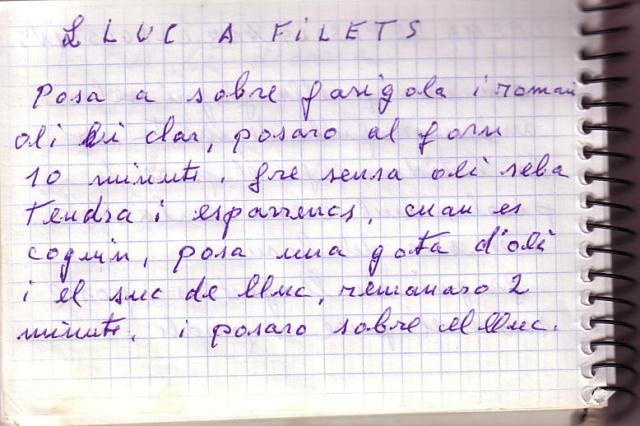 LLUC A FILETS
Posa a sobre farigola i romaní
oli bi clar, posaro al forn
10 minuts. fre sensa oli seba
Tendra i esparrencs, cuan es
coguin, posa una gota d'oli
i el suc de lluc, remanaro 2
minuts. i posaro sobre el lluc.